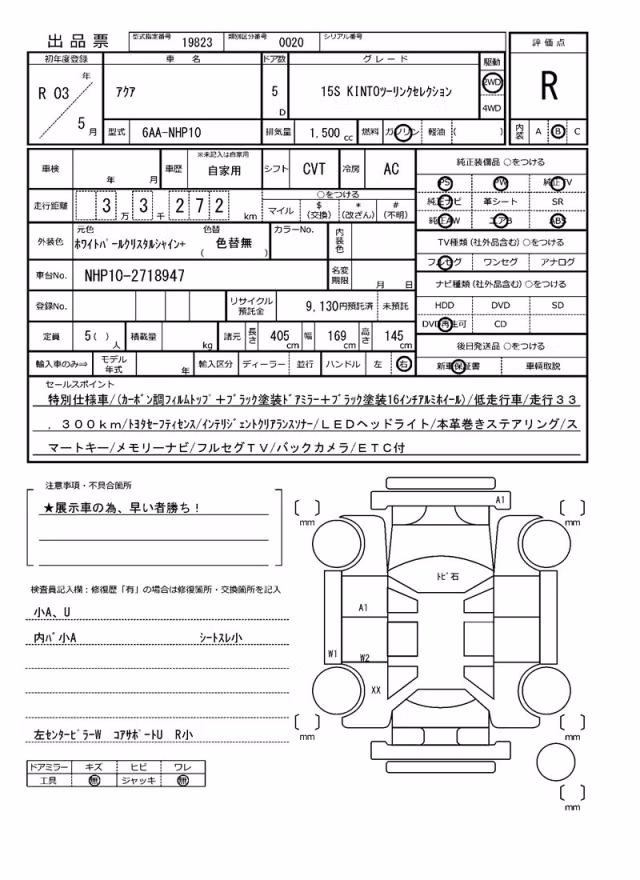 出品票 型式指定番号 19823 類別区分番号 0020 シリアル番号
評価点
R
内装 A B C
初年度登録 車名 ドア数 グレード 駆動
R 03 年 5 月
アクア 5 D 15S KINTOツーリンクセレクション 2WD 4WD
型式 6AA-NHP10 排気量 1.500 cc 燃料 ガソリン 軽油 ( )
車検 年 月 車歴 ※未記入は自家用 自家用 シフト CVT 冷房 AC
走行距離 3 万 3 千 2 7 2 km
○をつける
マイル $(交換) *(改ざん) #(不明)
外装色 元色 ホワイトパールクリスタルシャイン+ 色替 ( 色替無 ) カラーNo. 内装色
車台No. NHP10-2718947 名変期限 月 日
登録No. リサイクル預託金 9,130円預託済 未預託
定員 5( )人 積載量 kg 諸元 長さ 405 cm 幅 169 cm 高さ 145 cm
輸入車のみ⇒ モデル年式 年 輸入区分 ディーラー 並行 ハンドル 左 右
純正装備品 ○をつける
PS PW 純正TV
純正ナビ 革シート SR
純正AW エアB ABS
TV種類(社外品含む)○をつける
フルセグ ワンセグ アナログ
ナビ種類(社外品含む)○をつける
HDD DVD SD
DVD再生可 CD
後日発送品 ○をつける
新車保証書 車輌取説
セールスポイント
特別仕様車/(カーボン調フィルムトップ+ブラック塗装ドアミラー+ブラック塗装16インチアルミホイール)/低走行車/走行33
.300km/トヨタセーフティセンス/インテリジェントクリアランスソナー/LEDヘッドライト/本革巻きステアリング/ス
マートキー/メモリーナビ/フルセグTV/バックカメラ/ETC付
注意事項・不具合箇所
★展示車の為、早い者勝ち!
検査員記入欄:修復歴「有」の場合は修復箇所・交換箇所を記入
小A、U
内バ小A シートスレ小
左センターピラーW コアサポートU R小
ドアミラー キズ ヒビ ワレ
工具 無 ジャッキ 無
A1
mm
mm
トビ石
A1
W1
W2
XX
mm
mm
mm